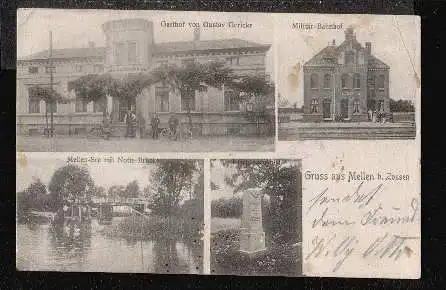 Gasthof von Gustav Gericke
Militär-Bahnhof
Mellen-See mit Notte-Brücke
Gruss aus Mellen b. Zossen
sendet
Dein Freund
Willy Otto